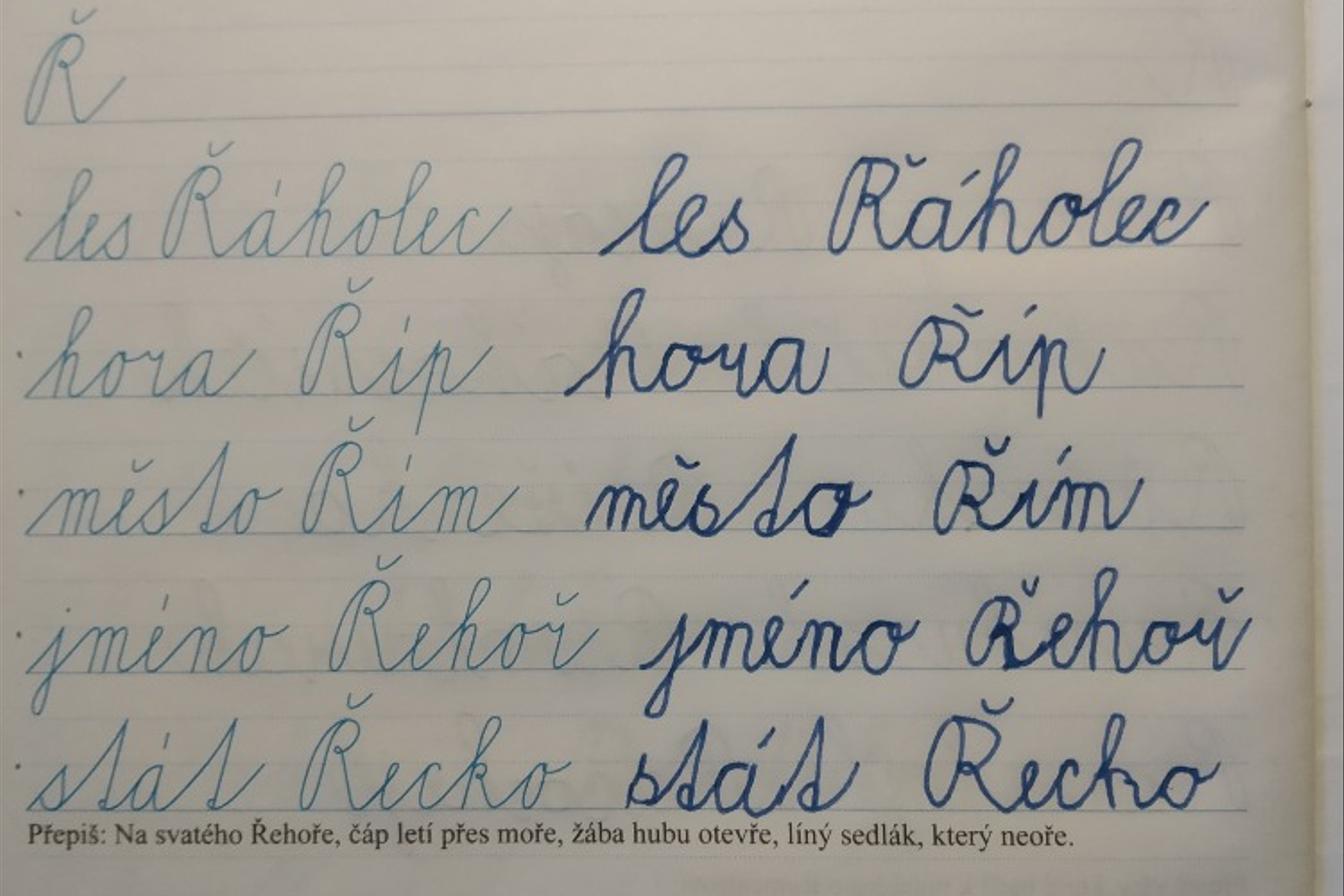 Ř
les Řáholec les Řáholec
hora Říp hora Říp
město Řím město Řím
jméno Řehoř jméno Řehoř
stát Řecko stát Řecko
Přepiš: Na svatého Řehoře, čáp letí přes moře, žába hubu otevře, líný sedlák, který neoře.